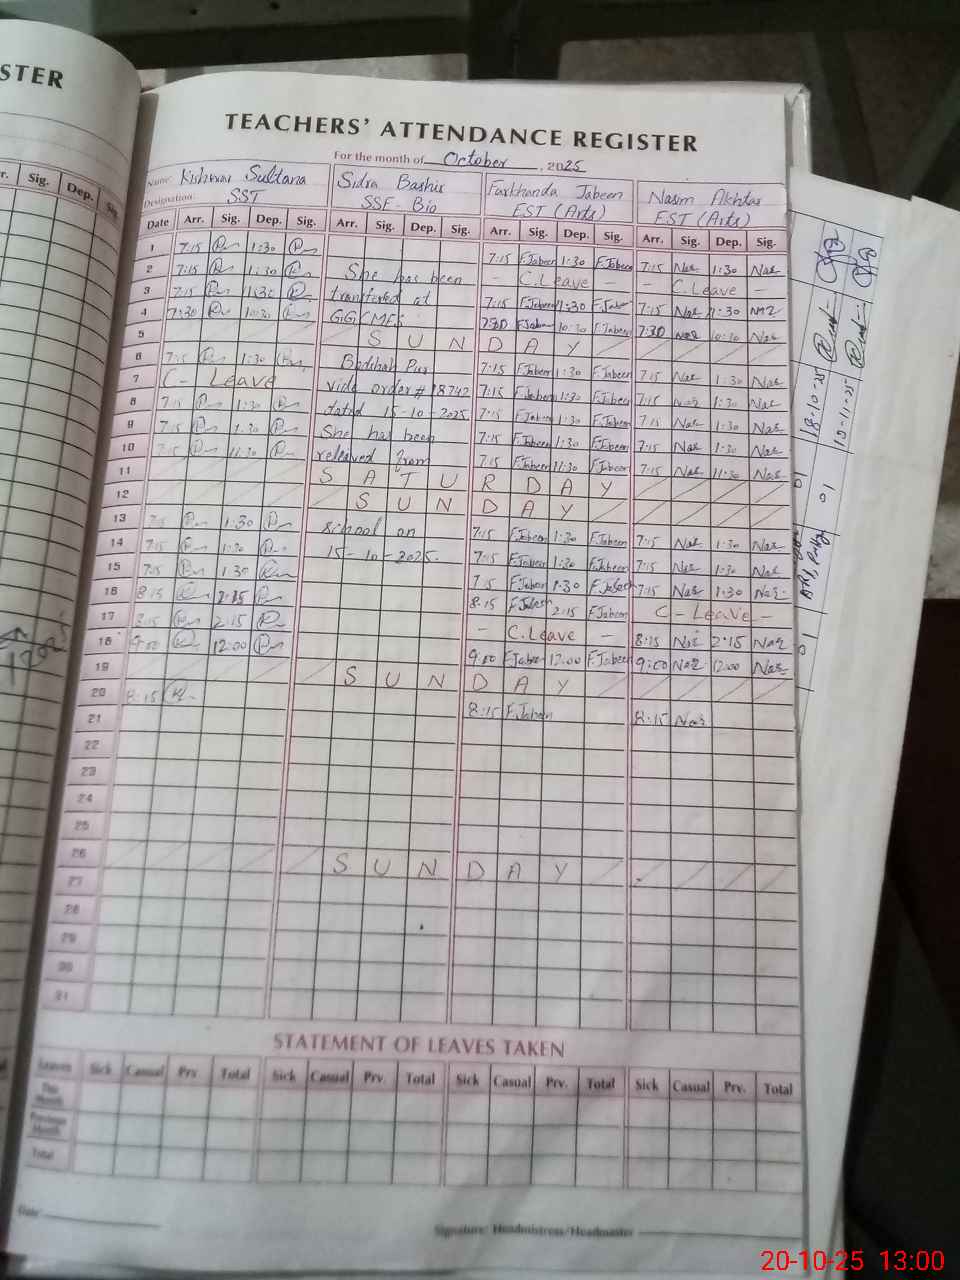 STER
TEACHERS' ATTENDANCE REGISTER
For the month of October, 2025
Name: Kishwar Sultana Sidra Bashir Farkhanda Jabeen Nasim Akhtar
Designation: SST SSE-Bio EST (Arts) EST (Arts)
r. Sig. Dep. Sig.
Date Arr. Sig. Dep. Sig. Arr. Sig. Dep. Sig. Arr. Sig. Dep. Sig. Arr. Sig. Dep. Sig.
1 7:15 1:30 7:15 F.Jabeen 1:30 F.Jabeen 7:15 Nas 1:30 Nas
2 7:15 1:30 She has been - C.Leave - - C.Leave -
3 7:15 1:30 transfered at 7:15 F.Jabeen 1:30 F.Jabeen 7:15 Nas 1:30 Nas
4 7:30 10:30 GGCMES 7:30 F.Jabeen 10:30 F.Jabeen 7:30 Nas 10:30 Nas
5 SUNDAY
6 7:15 1:30 7:15 F.Jabeen 1:30 F.Jabeen 7:15 Nas 1:30 Nas
7 C-Leave vide order # 18742 7:15 F.Jabeen 1:30 F.Jabeen 7:15 Nas 1:30 Nas
8 7:15 1:30 dated 15-10-2025 7:15 F.Jabeen 1:30 F.Jabeen 7:15 Nas 1:30 Nas
9 7:15 1:30 She has been 7:15 F.Jabeen 1:30 F.Jabeen 7:15 Nas 1:30 Nas
10 7:15 11:30 releaved from 7:15 F.Jabeen 11:30 F.Jabeen 7:15 Nas 11:30 Nas
11 SATURDAY
12 SUNDAY
13 7:15 1:30 school on 7:15 F.Jabeen 1:30 F.Jabeen 7:15 Nas 1:30 Nas
14 7:15 1:30 15-10-2025. 7:15 F.Jabeen 1:30 F.Jabeen 7:15 Nas 1:30 Nas
15 7:15 1:30 7:15 F.Jabeen 1:30 F.Jabeen 7:15 Nas 1:30 Nas
16 8:15 2:15 8:15 F.Jabeen 2:15 F.Jabeen C-Leave-
17 8:15 2:15 - C.Leave - 8:15 Nas 2:15 Nas
18 9:00 12:00 9:00 F.Jabeen 12:00 F.Jabeen 9:00 Nas 12:00 Nas
19 SUNDAY
20 8:15 8:15 F.Jabeen 8:15 Nas
21
22
23
24
25
26 SUNDAY
27
28
29
30
31
STATEMENT OF LEAVES TAKEN
Leaves Sick Casual Prv. Total Sick Casual Prv. Total Sick Casual Prv. Total Sick Casual Prv. Total
This Month
Previous Month
Total
Date:
Signature: Headmistress/Headmaster
18-10-25
10-11-25
01
01
20-10-25 13:00